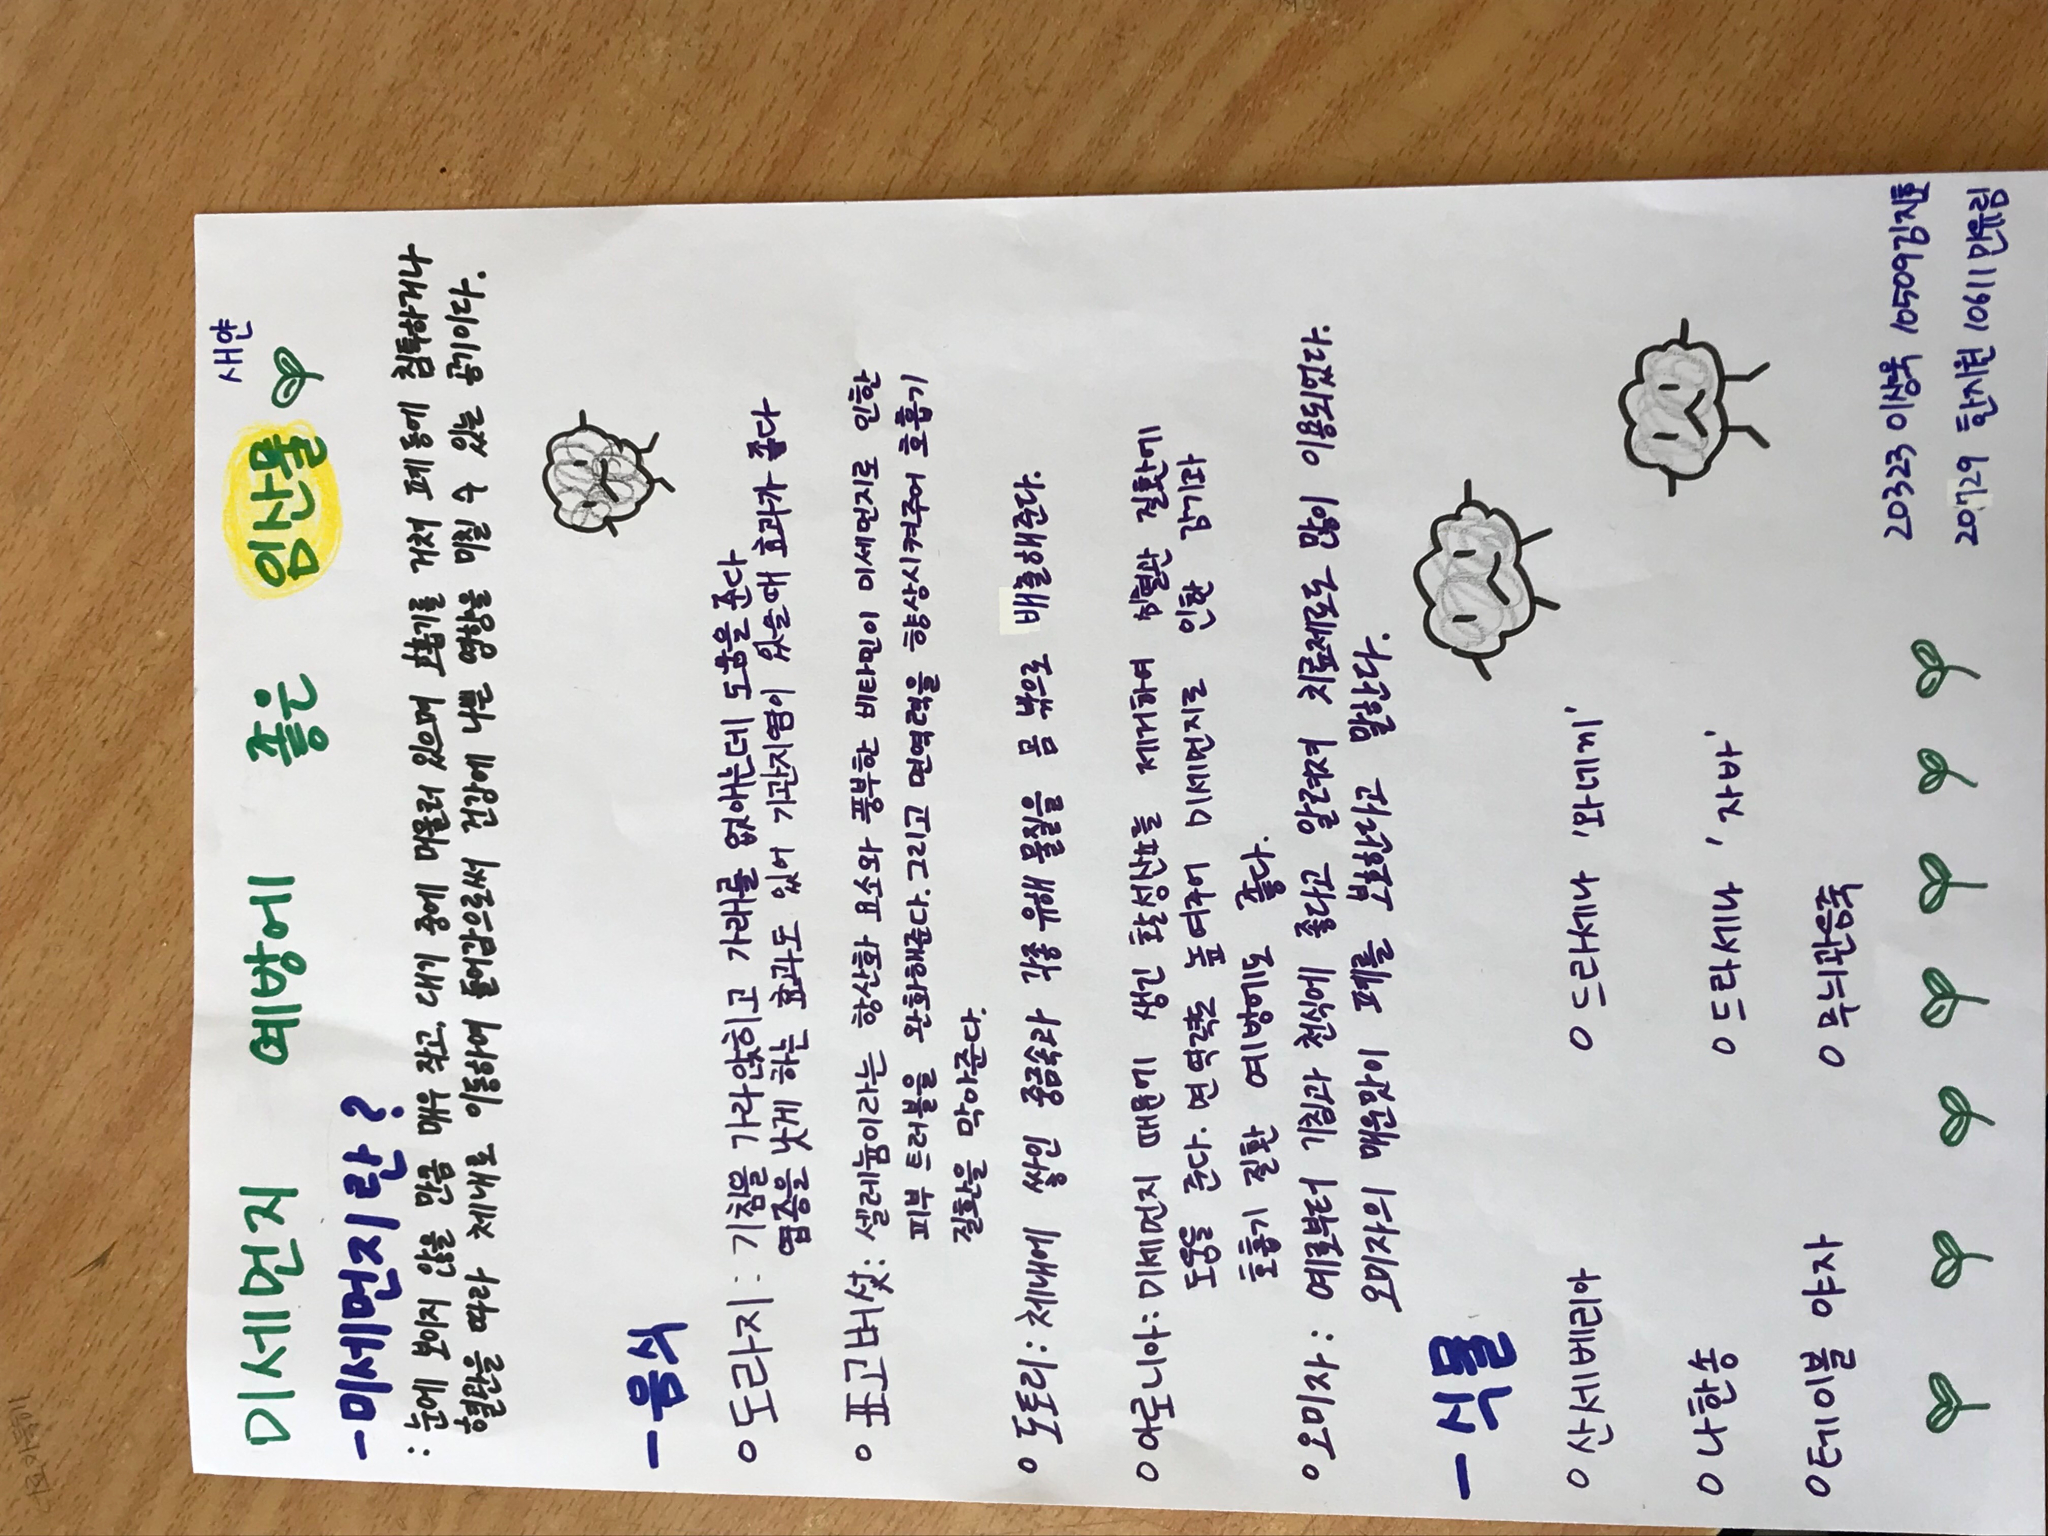 새얀
미세먼지 예방에 좋은 임산물
-미세먼지란?
: 눈에 보이지 않을 만큼 매우 작고, 대기 중에 머물러 있으며 호흡기를 거쳐 폐 등에 침투하거나
혈관을 따라 체내로 이동하여 들어감으로써 건강에 나쁜 영향을 미칠 수 있는 공기이다.
-음식
o 도라지 : 기침을 가라앉히고 가래를 없애는데 도움을 준다
염증을 낫게 하는 효과도 있어 기관지염이 있을때 효과가 좋다
o 표고버섯: 셀레늄이라는 항산화 요소와 풍부한 비타민이 미세먼지로 인한
피부 트러블을 완화해준다. 그리고 면역력을 향상시켜주어 호흡기
질환을 막아준다.
o 도토리: 체내에 쌓인 중금속과 각종 유해 물질을 몸 밖으로 배출해준다.
o 아로니아: 미세먼지 때문에 생긴 활성산소를 제거하여 심혈관 질환에
도움을 준다. 면역력을 높여주어 미세먼지로 인한 감기와
호흡기 질환 예방에도 좋다.
o 오미자 : 예로부터 기침과 천식에 좋다고 알려져 치료제로도 많이 이용되었다.
오미자의 매운맛이 폐를 보호한다고 말한다.
-식물
o 산세베리아 o 드라세나 '와네끼'
o 나한송 o 드라세나 '자바'
o 테이블 야자 o 무늬관음죽
20323 이상욱 10509김지호
20729 한지원 10611 민유림